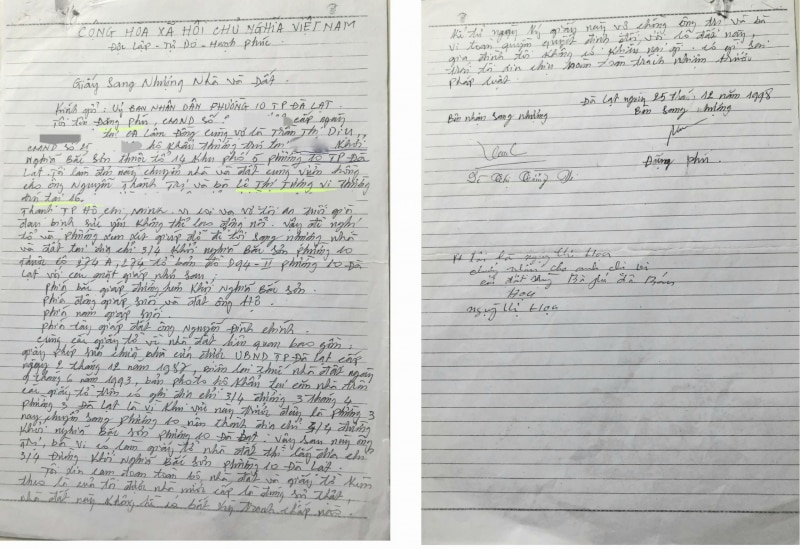 CỘNG HÒA XÃ HỘI CHỦ NGHĨA VIỆT NAM
Độc Lập - Tự Do - Hạnh phúc
Giấy Sang Nhượng Nhà và Đất.
Kính gởi: Uỷ BAN NHÂN DÂN PHƯỜNG 10 TP ĐÀ LẠT.
Tôi tên Đồng Phú, CMND số cấp ngày
tại CA Lâm Đồng cùng vợ là Trần Thị Dịu
CMND số 25 hộ khẩu thường trú tại Khởi
nghĩa Bắc Sơn thuộc tổ 14 Khu phố 6 phường 10 TP Đà
Lạt. Tôi làm đơn này chuyển nhà và đất cùng
cho ông Nguyễn Thanh Trị và bà Lê Thị Tường Vi thường
trú tại
Thành TP Hồ Chí Minh. Vì lý do vợ tôi
đau bệnh không thể lao động nổi. Vậy đề nghị
tổ và phường xem xét giúp đỡ để tôi sang nhượng nhà
và đất tại địa chỉ 3/4 Khởi nghĩa Bắc Sơn phường 10
thuộc lô 174A, 174 tờ bản đồ D94-II phường 10 Đà
Lạt với các mặt giáp như sau:
phía bắc giáp đường hẻm Khởi Nghĩa Bắc Sơn.
phía đông giáp suối và đất ông
phía nam giáp suối.
phía tây giáp đất ông Nguyễn Đình Chinh.
Cùng các giấy tờ về nhà đất liên quan bao gồm:
giấy phép sửa chữa nhà của được UBND TP Đà Lạt cấp
ngày 2 tháng 12 năm 1987, biên lai thuế nhà đất ngày
9 tháng 6 năm 1993, bản photo hộ khẩu tại căn nhà trên
các giấy tờ trên có ghi địa chỉ 3/4 đường 3 tháng 4
phường 3 Đà Lạt là vì khu vực này trước đây là phường 3
nay chuyển sang phường 10 nên thành địa chỉ 3/4 đường
Khởi nghĩa Bắc Sơn phường 10 Đà Lạt. Vậy sau này ông
Trị, bà Vi có làm giấy tờ nhà đất thì lấy địa chỉ
3/4 Đường Khởi Nghĩa Bắc Sơn phường 10 Đà Lạt.
Tôi xin cam đoan toàn bộ nhà đất và giấy tờ kèm
theo là của tôi được nhà nước cấp là đúng sự thật,
nhà đất này không hề có bất kỳ tranh chấp nào.
Kể từ ngày ký giấy này vợ chồng ông Trị và bà
Vi toàn quyền quyết định đối với lô đất này,
gia đình tôi không có khiếu nại gì. Có gì sai
trái tôi xin chịu hoàn toàn trách nhiệm trước
pháp luật.
Đà Lạt ngày 25 tháng 12 năm 1998
Bên nhận sang nhượng Bên sang nhượng
Đồng phú
Lê Thị Tường Vi
Tôi là nguyễn thị Hoa
chứng nhận cho anh chị tôi
Bà Phú đã Bán
Hoa
nguyễn thị Hoa